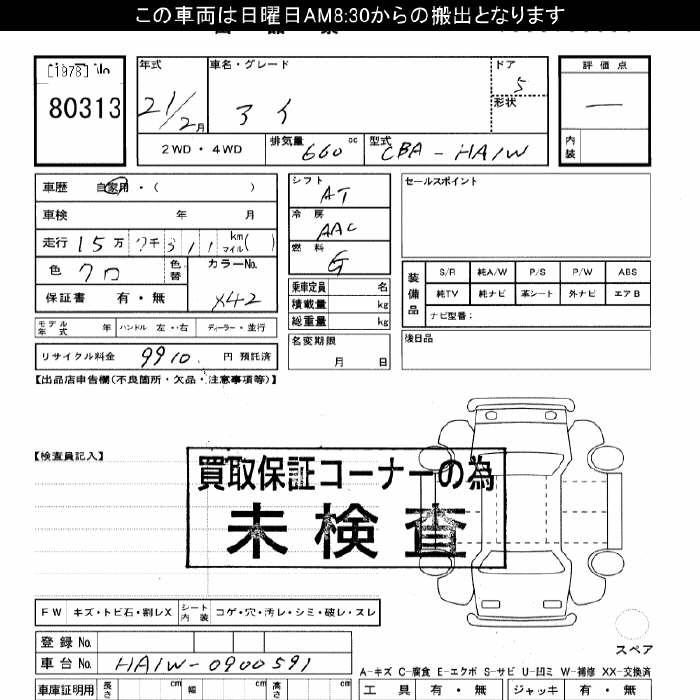 この車両は日曜日AM8:30からの搬出となります
[1978] No
80313
年式 車名・グレード ドア 評価点
21/2月 アイ 5 —
形状
2WD・4WD 排気量 660 cc 型式 CBA-HA1W 内装
車歴 自家用・( )
車検 年 月
走行 15万7千311 km マイル( )
色 クロ 色替 カラーNo.
保証書 有・無 X42
モデル年式 年 ハンドル 左・右 ディーラー・並行
リサイクル料金 9910. 円 預託済
シフト AT
冷房 AAC
燃料 G
乗車定員 名
積載量 kg
総重量 kg
名変期限
月 日
セールスポイント
装備品 S/R 純A/W P/S P/W ABS
純TV 純ナビ 革シート 外ナビ エアB
ナビ型番:
後日品
【出品店申告欄(不良箇所・欠品・注意事項等)】
【検査員記入】
買取保証コーナーの為
未検査
FW キズ・トビ石・割レX シート内装 コゲ・穴・汚レ・シミ・破レ・スレ
スペア
登録No.
車台No. HA1W-0900591
A-キズ C-腐食 E-エクボ S-サビ U-凹ミ W-補修 XX-交換済
車庫証明用 長さ cm 幅 cm 高さ cm 工具 有・無 ジャッキ 有・無